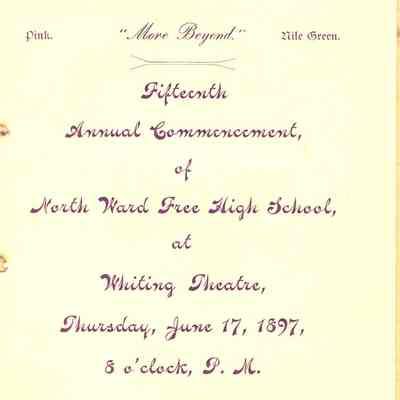 Pink. "More Beyond." Nile Green.
Fifteenth
Annual Commencement,
of
North Ward Free High School,
at
Whiting Theatre,
Thursday, June 17, 1897,
8 o'clock, P. M.